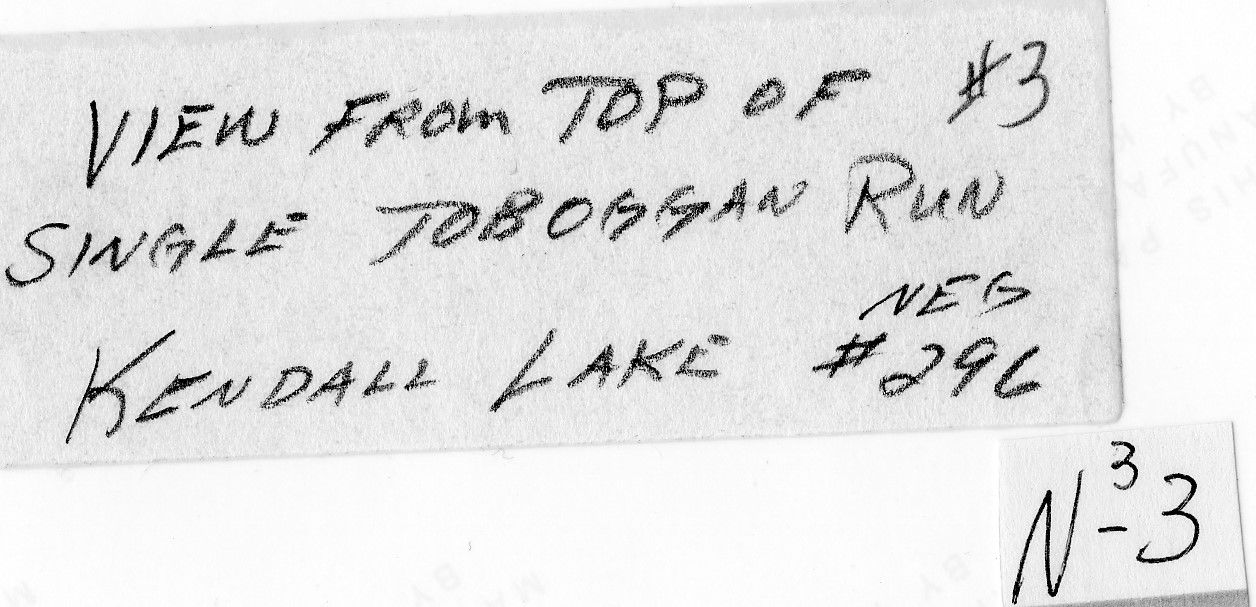 VIEW FROM TOP OF #3
SINGLE TOBOGGAN RUN
KENDALL LAKE NEG #296
N³-3